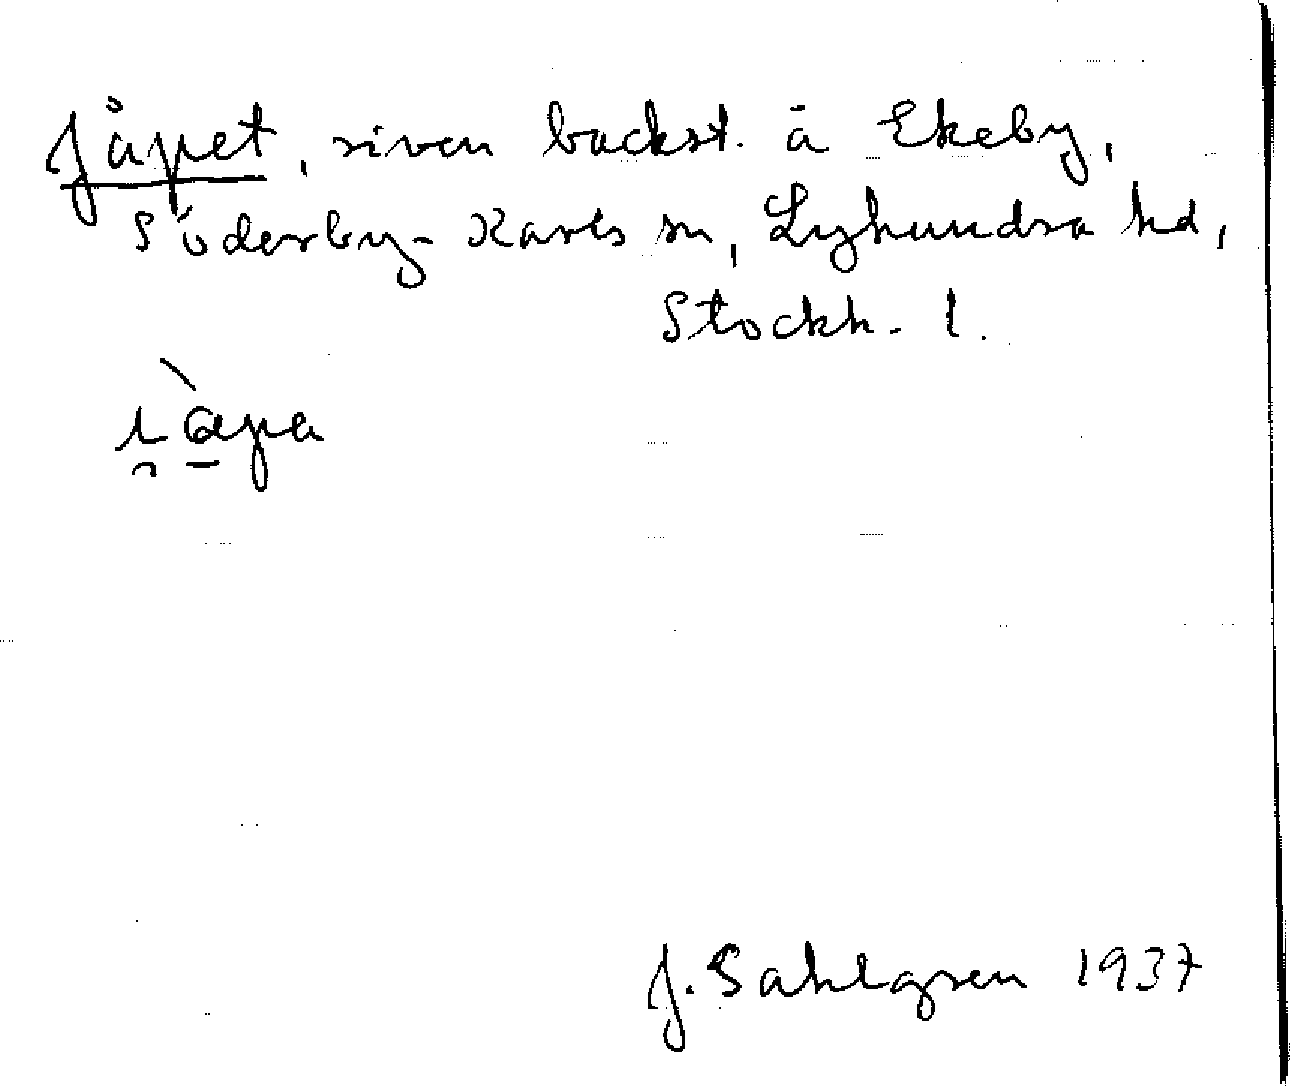 Jåpet, riven backst. å Ekeby,
Söderby-Karls sn, Lyhundra hd,
Stockh. l.
J. Sahlgren 1937